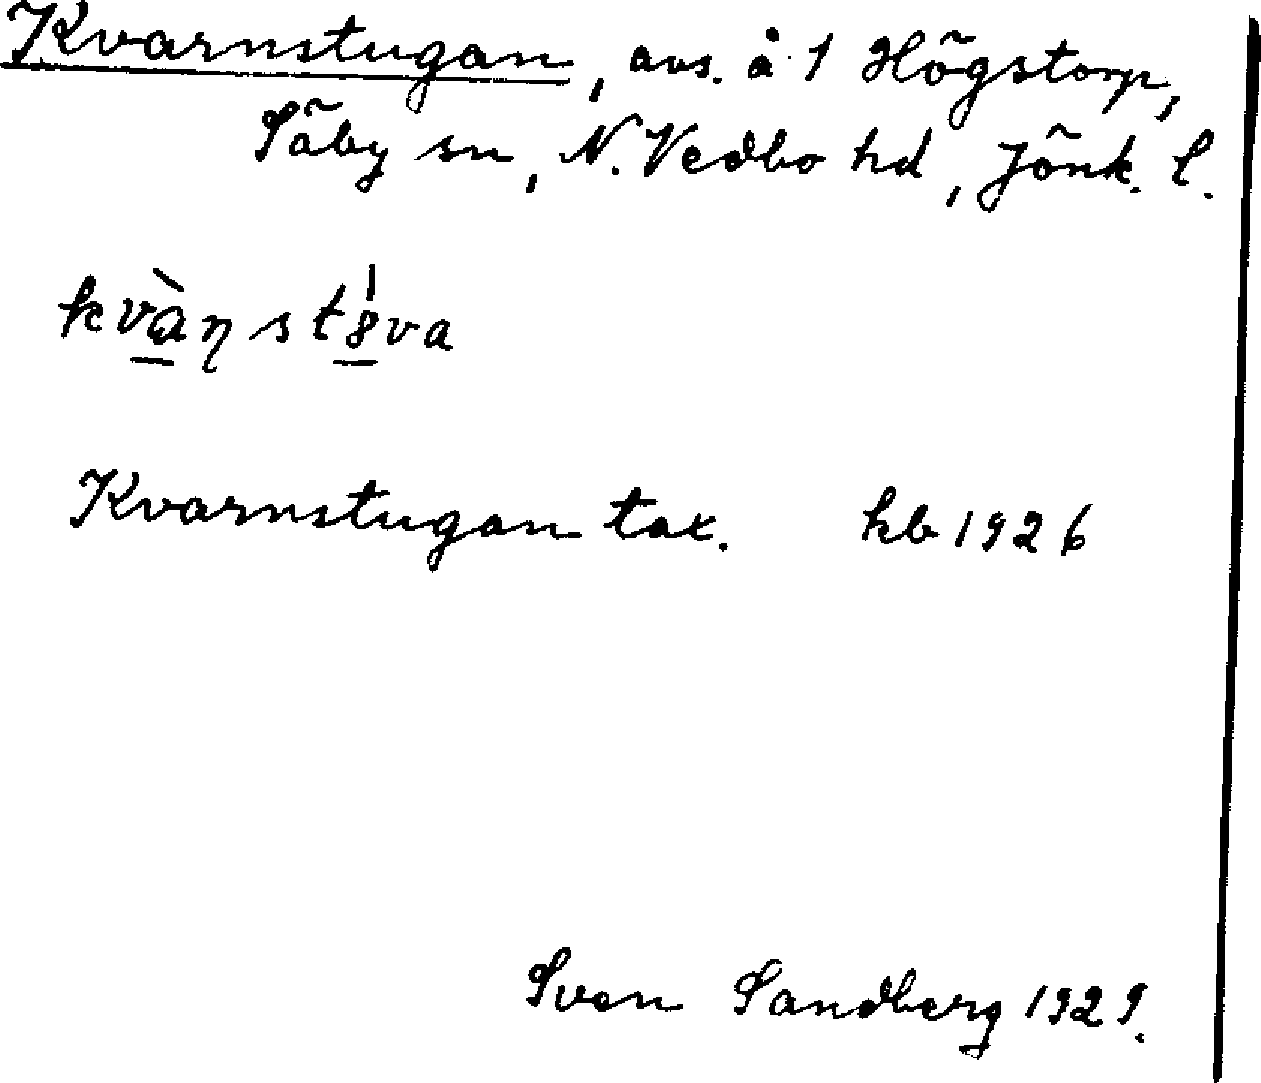 Kvarnstugan, avs. å 1 Högstorp,
Säby sn, N. Vedbo hd, Jönk. l.
Kvarnstugan tax. hb 1926
Sven Sandberg 1929.